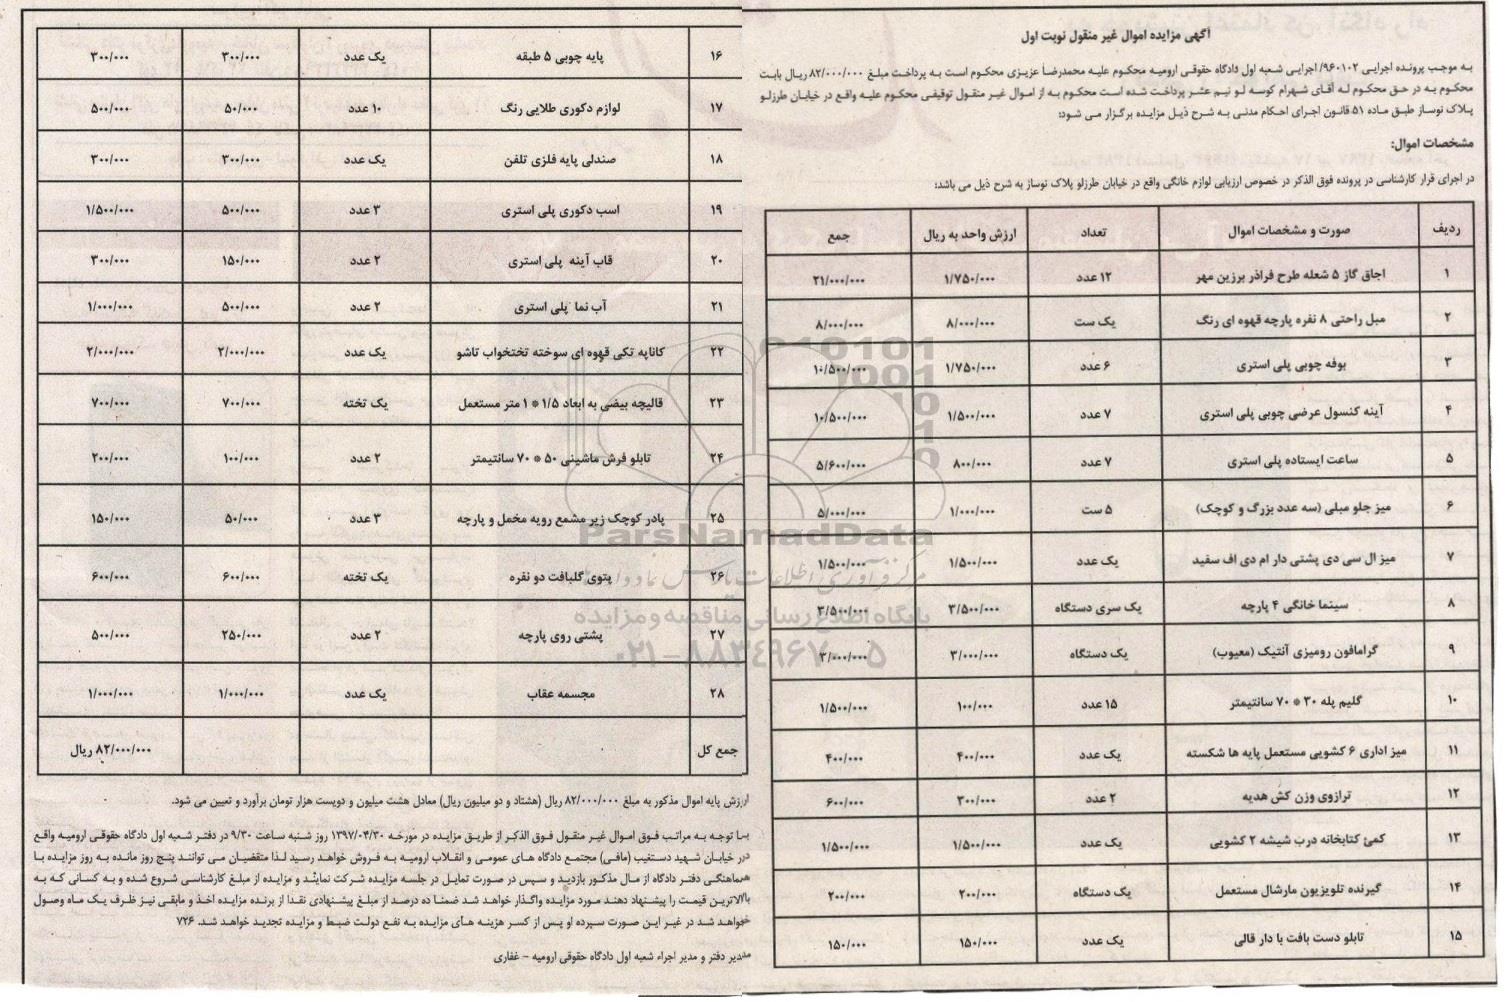 آگهی مزایده اموال غیر منقول نوبت اول
به موجب پرونده اجرایی ۹۶۰۱۰۲/ اجرایی شعبه اول دادگاه حقوقی ارومیه محکوم علیه محمدرضا عزیزی محکوم است به پرداخت مبلغ ۸۲/۰۰۰/۰۰۰ ریال بابت
محکوم به در حق محکوم له آقای شهرام کوسه لو نیم عشر پرداخت شده است محکوم به از اموال غیر منقول توقیفی محکوم علیه واقع در خیابان طرزلو
پلاک نوساز طبق ماده ۵۱ قانون اجرای احکام مدنی به شرح ذیل مزایده برگزار می شود:
مشخصات اموال:
در اجرای قرار کارشناسی در پرونده فوق الذکر در خصوص ارزیابی لوازم خانگی واقع در خیابان طرزلو پلاک نوساز به شرح ذیل می باشد:
ردیف صورت و مشخصات اموال تعداد ارزش واحد به ریال جمع
۱ اجاق گاز ۵ شعله طرح فرادر برزین مهر ۱۲ عدد ۱/۷۵۰/۰۰۰ ۲۱/۰۰۰/۰۰۰
۲ مبل راحتی ۸ نفره پارچه قهوه ای رنگ یک ست ۸/۰۰۰/۰۰۰ ۸/۰۰۰/۰۰۰
۳ بوفه چوبی پلی استری ۶ عدد ۱/۷۵۰/۰۰۰ ۱۰/۵۰۰/۰۰۰
۴ آینه کنسول عرضی چوبی پلی استری ۷ عدد ۱/۵۰۰/۰۰۰ ۱۰/۵۰۰/۰۰۰
۵ ساعت ایستاده پلی استری ۷ عدد ۸۰۰/۰۰۰ ۵/۶۰۰/۰۰۰
۶ میز جلو مبلی (سه عدد بزرگ و کوچک) ۵ ست ۱/۰۰۰/۰۰۰ ۵/۰۰۰/۰۰۰
۷ میز ال سی دی پشتی دار ام دی اف سفید یک عدد ۱/۵۰۰/۰۰۰ ۱/۵۰۰/۰۰۰
۸ سینما خانگی ۴ پارچه یک سری دستگاه ۳/۵۰۰/۰۰۰ ۳/۵۰۰/۰۰۰
۹ گرامافون رومیزی آنتیک (معیوب) یک دستگاه ۳/۰۰۰/۰۰۰ ۳/۰۰۰/۰۰۰
۱۰ گلیم پله ۳۰ * ۷۰ سانتیمتر ۱۵ عدد ۱۰۰/۰۰۰ ۱/۵۰۰/۰۰۰
۱۱ میز اداری ۶ کشویی مستعمل پایه ها شکسته یک عدد ۴۰۰/۰۰۰ ۴۰۰/۰۰۰
۱۲ ترازوی وزن کش هدیه ۲ عدد ۳۰۰/۰۰۰ ۶۰۰/۰۰۰
۱۳ کمد کتابخانه درب شیشه ۲ کشویی یک عدد ۱/۵۰۰/۰۰۰ ۱/۵۰۰/۰۰۰
۱۴ گیرنده تلویزیون مارشال مستعمل یک دستگاه ۲۰۰/۰۰۰ ۲۰۰/۰۰۰
۱۵ تابلو دست بافت با دار قالی یک عدد ۱۵۰/۰۰۰ ۱۵۰/۰۰۰
۱۶ پایه چوبی ۵ طبقه یک عدد ۳۰۰/۰۰۰ ۳۰۰/۰۰۰
۱۷ لوازم دکوری طلایی رنگ ۱۰ عدد ۵۰/۰۰۰ ۵۰۰/۰۰۰
۱۸ صندلی پایه فلزی تلفن یک عدد ۳۰۰/۰۰۰ ۳۰۰/۰۰۰
۱۹ اسب دکوری پلی استری ۳ عدد ۵۰۰/۰۰۰ ۱/۵۰۰/۰۰۰
۲۰ قاب آینه پلی استری ۲ عدد ۱۵۰/۰۰۰ ۳۰۰/۰۰۰
۲۱ آب نما پلی استری ۲ عدد ۵۰۰/۰۰۰ ۱/۰۰۰/۰۰۰
۲۲ کاناپه تکی قهوه ای سوخته تختخواب تاشو یک عدد ۲/۰۰۰/۰۰۰ ۲/۰۰۰/۰۰۰
۲۳ قالیچه بیضی به ابعاد ۱/۵ * ۱ متر مستعمل یک تخته ۷۰۰/۰۰۰ ۷۰۰/۰۰۰
۲۴ تابلو فرش ماشینی ۵۰ * ۷۰ سانتیمتر ۲ عدد ۱۰۰/۰۰۰ ۲۰۰/۰۰۰
۲۵ پادر کوچک زیر مشمع رویه مخمل و پارچه ۳ عدد ۵۰/۰۰۰ ۱۵۰/۰۰۰
۲۶ پتوی گلبافت دو نفره یک تخته ۶۰۰/۰۰۰ ۶۰۰/۰۰۰
۲۷ پشتی روی پارچه ۲ عدد ۲۵۰/۰۰۰ ۵۰۰/۰۰۰
۲۸ مجسمه عقاب یک عدد ۱/۰۰۰/۰۰۰ ۱/۰۰۰/۰۰۰
جمع کل ۸۲/۰۰۰/۰۰۰ ریال
ارزش پایه اموال مذکور به مبلغ ۸۲/۰۰۰/۰۰۰ ریال (هشتاد و دو میلیون ریال) معادل هشت میلیون و دویست هزار تومان برآورد و تعیین می شود.
با توجه به مراتب فوق اموال غیر منقول فوق الذکر از طریق مزایده در مورخه ۱۳۹۷/۰۴/۳۰ روز شنبه ساعت ۹/۳۰ در دفتر شعبه اول دادگاه حقوقی ارومیه واقع
در خیابان شهید دستغیب (مافی) مجتمع دادگاه های عمومی و انقلاب ارومیه به فروش خواهد رسید لذا متقضیان می توانند پنج روز مانده به روز مزایده با
هماهنگی دفتر دادگاه از مال مذکور بازدید و سپس در صورت تمایل در جلسه مزایده شرکت نمایند و مزایده از مبلغ کارشناسی شروع شده و به کسانی که به
بالاترین قیمت را پیشنهاد دهند مورد مزایده واگذار خواهد شد ضمنا ده درصد از مبلغ پیشنهادی نقدا از برنده مزایده اخذ و مابقی نیز ظرف یک ماه وصول
خواهد شد در غیر این صورت سپرده او پس از کسر هزینه های مزایده به نفع دولت ضبط و مزایده تجدید خواهد شد. ۷۲۶
مدیر دفتر و مدیر اجراء شعبه اول دادگاه حقوقی ارومیه - غفاری
ParsNamadData
پایگاه اطلاع رسانی مناقصه و مزایده
۰۲۱-۸۸۳۴۹۶۷۰-۵